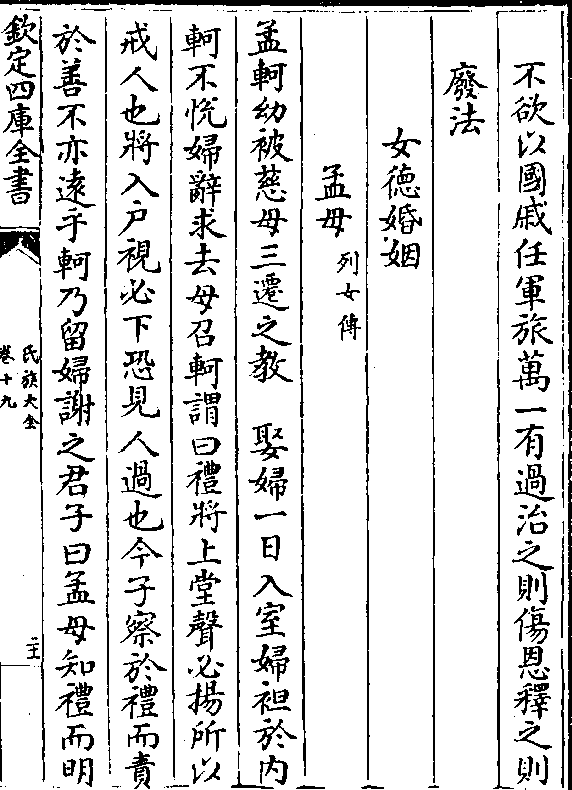 不欲以國戚任軍旅萬一有過治之則傷恩釋之則
廢法
女徳婚姻
孟母 列女傳
孟軻幼被慈母三遷之教 娶婦一日入室婦袒於内
軻不悦婦辭求去母召軻謂曰禮將上堂聲必揚所以
戒人也將入户視必下恐見人過也今子察於禮而責
於善不亦逺乎軻乃留婦謝之君子曰孟母知禮而明
欽定四庫全書
氏族大全
卷十九